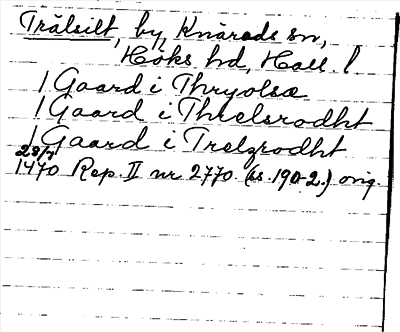 Trälsilt, by, Knäreds sn,
Höks hd, Hall. l.
1 Gaard i Thryolsæ
1 Gaard i Threlsrodht
1 Gaard i Trelgrodht
23/7
1470 Rep. II nr 2770. (ss. 190-2.) orig.